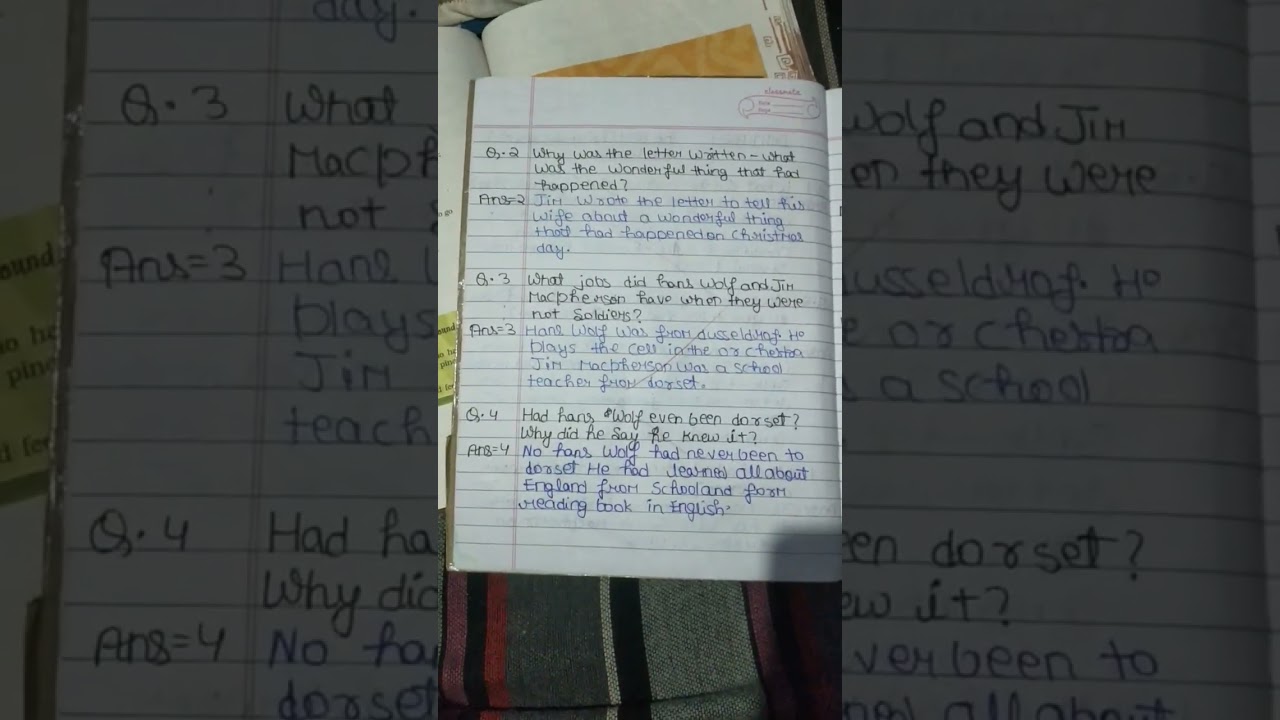 classmate
Date
Page
Q.2 Why was the letter written - what
was the wonderful thing that had
happened?
Ans=2 Jim wrote the letter to tell his
wife about a wonderful thing
that had happened on christmas
day.
Q.3 What jobs did hans wolf and Jim
Macpherson have when they were
not soldiers?
Ans=3 Hans Wolf was from dusseldraf. He
plays the cell in the orchestra
Jim Macpherson was a school
teacher from dorset.
Q.4 Had hans Wolf even been dorset?
Why did he say he knew it?
Ans=4 No hans Wolf had never been to
dorset He had learned all about
England from school and form
reading book in English.